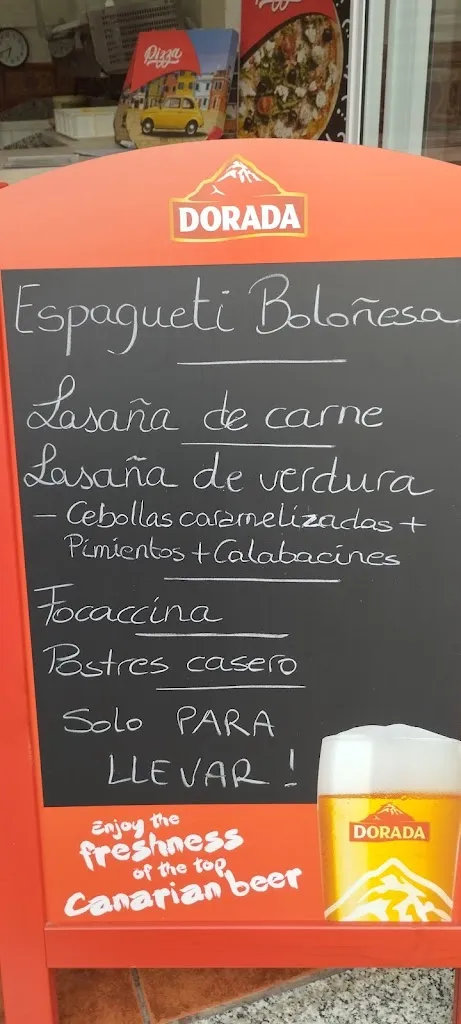 Pizza
DORADA
Espagueti Boloñesa
Lasaña de carne
Lasaña de verdura
- Cebollas caramelizadas +
Pimientos + Calabacines
Focaccina
Postres casero
Solo PARA
LLEVAR !
DORADA
Enjoy the
freshness
of the top
Canarian beer